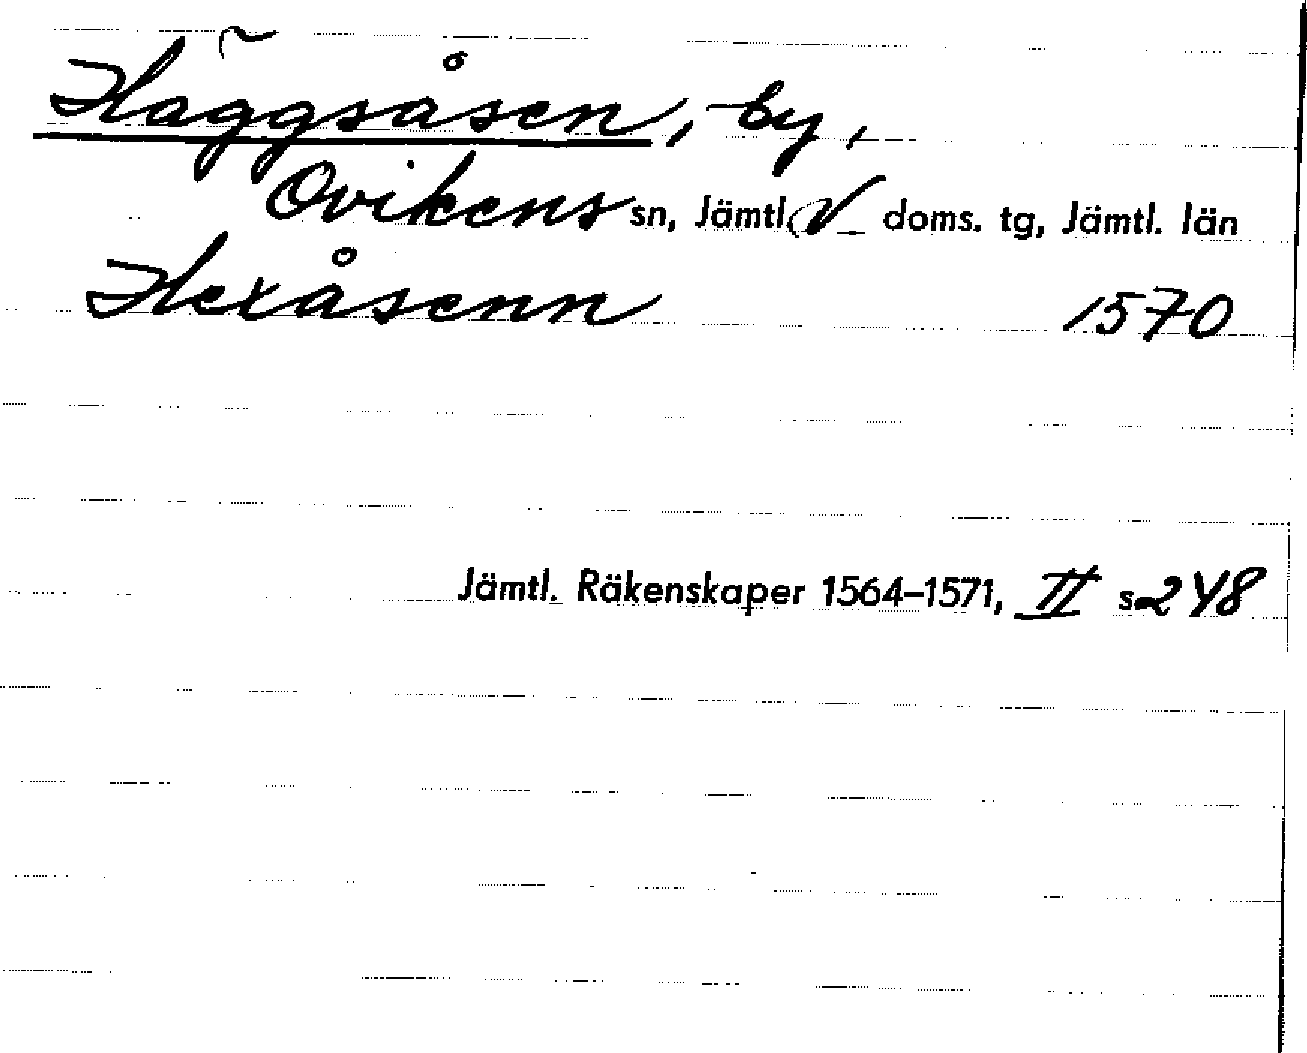 Häggsåsen, by,
Ovikens sn, Jämtl. V doms. tg, Jämtl. län
Hexåsenn 1570
Jämtl. Räkenskaper 1564–1571, II s. 248